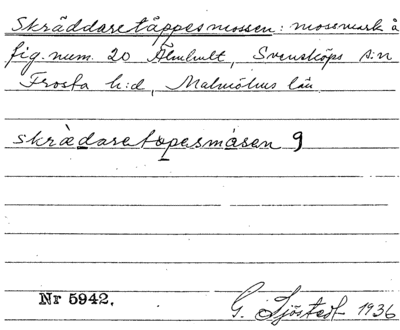 Skräddaretäppesmossen: mosemark å
fig. num. 20 Älmhult, Svensköps s:n
Frosta h:d, Malmöhus län
skrädaretapesmåsen 9
Nr 5942.
G. Sjöstedt 1936